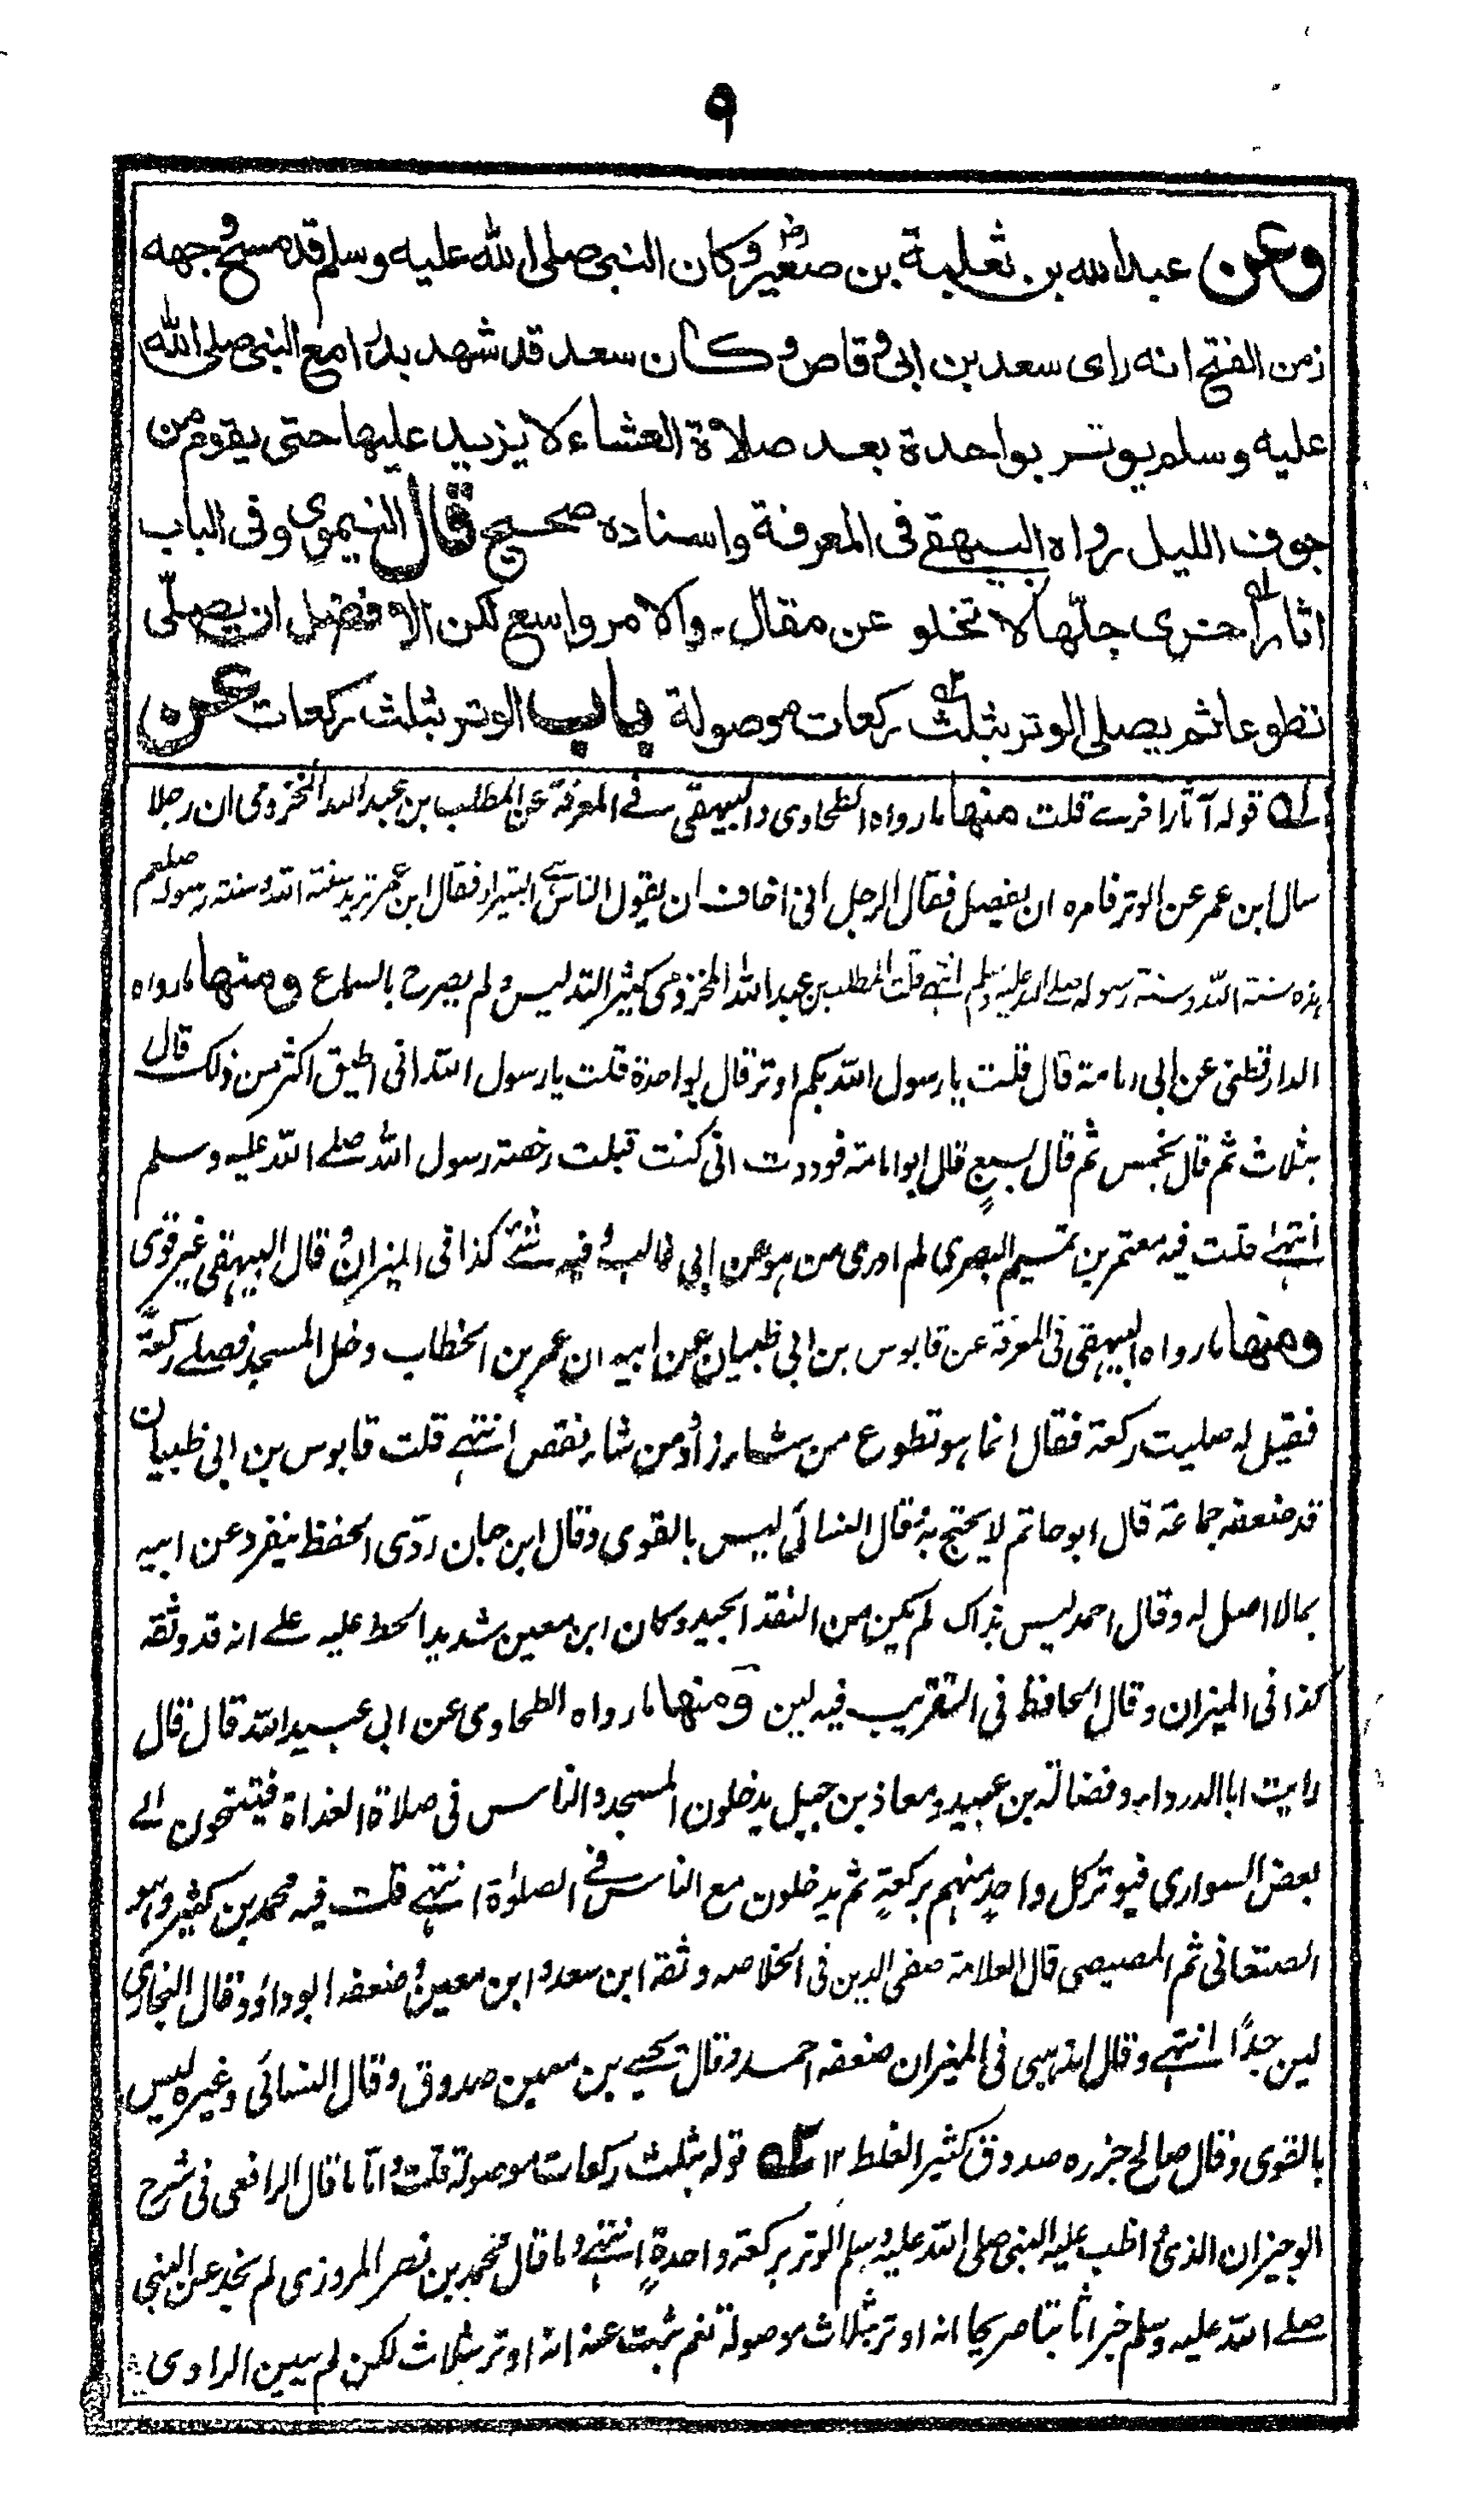 ٩
وعن عبدالله بن ثعلبة بن صعيرؓ وكان النبى صلى الله عليه وسلم قد مسح وجهه
زمن الفتح انه راى سعد بن ابى وقاص وكان سعد قد شهد بدرا مع النبى صلى الله
عليه وسلم يوتر بواحدة بعد صلاة العشاء لا يزيد عليها حتى يقوم من
جوف الليل رواه البيهقے فى المعرفة واسناده صحيح قال النيموى وفى الباب
اثار اخرى جلها لا تخلو عن مقال۔ والامر واسع لكن الافضل ان يصلى
تطوعا ثم يصلى الوتر بثلث ركعات موصولة باب الوتر بثلث ركعات عن
له قوله آثارا خرے قلت منها مارواه الطحاوى والبيهقى فے المعرفة عن المطلب بن عبد الله المخزومى ان رجلا
سال ابن عمر عن الوتر فامره ان يفصل فقال الرجل انى اخاف ان يقول الناس هے البتيراء فقال ابن عمر تريد سنة الله وسنة رسوله صلعم
هذه سنة الله وسنة رسوله صلى الله عليه وسلم انتہے قلت المطلب بن عبد الله المخزومى كثير التدليس ولم يصرح بالسماع ومنها مارواه
الدارقطنى عن ابى امامة قال قلت يا رسول الله بكم اوتر قال بواحدة قلت يا رسول الله انى اطيق اكثر من ذلك قال
بثلاث ثم قال بخمس ثم قال بسبع قال ابو امامة فوددت انى كنت قبلت رخصة رسول الله صلے الله عليه وسلم
انتہے قلت فيه معتمر بن تميم البصرى لم ادرى من هو عن ابى غالب وفيه شئ كذا فى الميزان وقال البيهقى غير قوى
ومنها مارواه البيهقى فى المعرفة عن قابوس بن ابى ظبيان عن ابيه ان عمر بن الخطاب دخل المسجد فصلے ركعة
فقيل له صليت ركعة فقال انما هو تطوع من شاء زاد ومن شاء نقص انتہے قلت قابوس بن ابى ظبيان
قد ضعفه جماعة قال ابو حاتم لا يحتج به وقال النسائى ليس بالقوى وقال ابن حبان ردّى الحفظ ينفرد عن ابيه
بمالا اصل له وقال احمد ليس بذاك لم يكن من النقد الجيد وكان ابن معين شديد الحط عليه علے انه قد وثقه
كذا فى الميزان وقال الحافظ فى التقريب فيه لين ومنها مارواه الطحاوى عن ابى عبيد الله قال قال
رايت ابا الدرداء وفضالة بن عبيد ومعاذ بن جبل يدخلون المسجد والناس فى صلاة الغداة فيتنحون الے
بعض السوارى فيوتر كل واحد منهم بركعة ثم يدخلون مع الناس فے الصلوٰة انتہے قلت فيه محمد بن كثير وهو
الصنعانى ثم المصيصى قال العلامة صفى الدين فى الخلاصه وثقه ابن سعد وابن معين وضعفه ابو داؤد وقال البخارى
لين جدًا انتہے وقال الذهبى فى الميزان ضعفه احمد وقال يحيے بن معين صدوق وقال النسائى وغيره ليس
بالقوى وقال صالح جزره صدوق كثير الغلط ١٢ قوله بثلث ركعات موصولة قلت واما ما قال الرافعى فى شرح
الوجيز ان الذى واظب عليه النبى صلى الله عليه وسلم الوتر بركعة واحدة انتہے وما قال محمد بن نصر المروزى لم نجد عن النبى
صلے الله عليه وسلم خبرا ثابتا صريحا انه اوتر بثلاث موصولة نعم ثبت عنه انه اوتر بثلاث لكن لم يبين الراوى